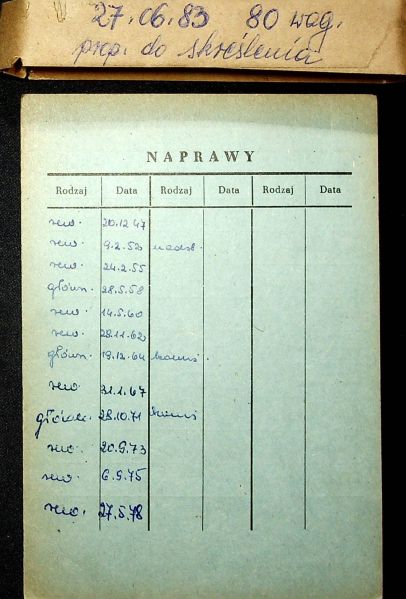 27.06.83 80 wag.
prop. do skreślenia
NAPRAWY
Rodzaj Data Rodzaj Data Rodzaj Data
rew. 20.12.47
rew. 9.2.52 nadzw.
rew. 24.2.55
główn. 28.5.58
rew. 14.5.60
rew. 28.11.62
główn. 19.12.64
rew. 31.1.67
główn. 28.10.71
rew. 20.9.73
rew. 6.9.75
rew. 27.5.78